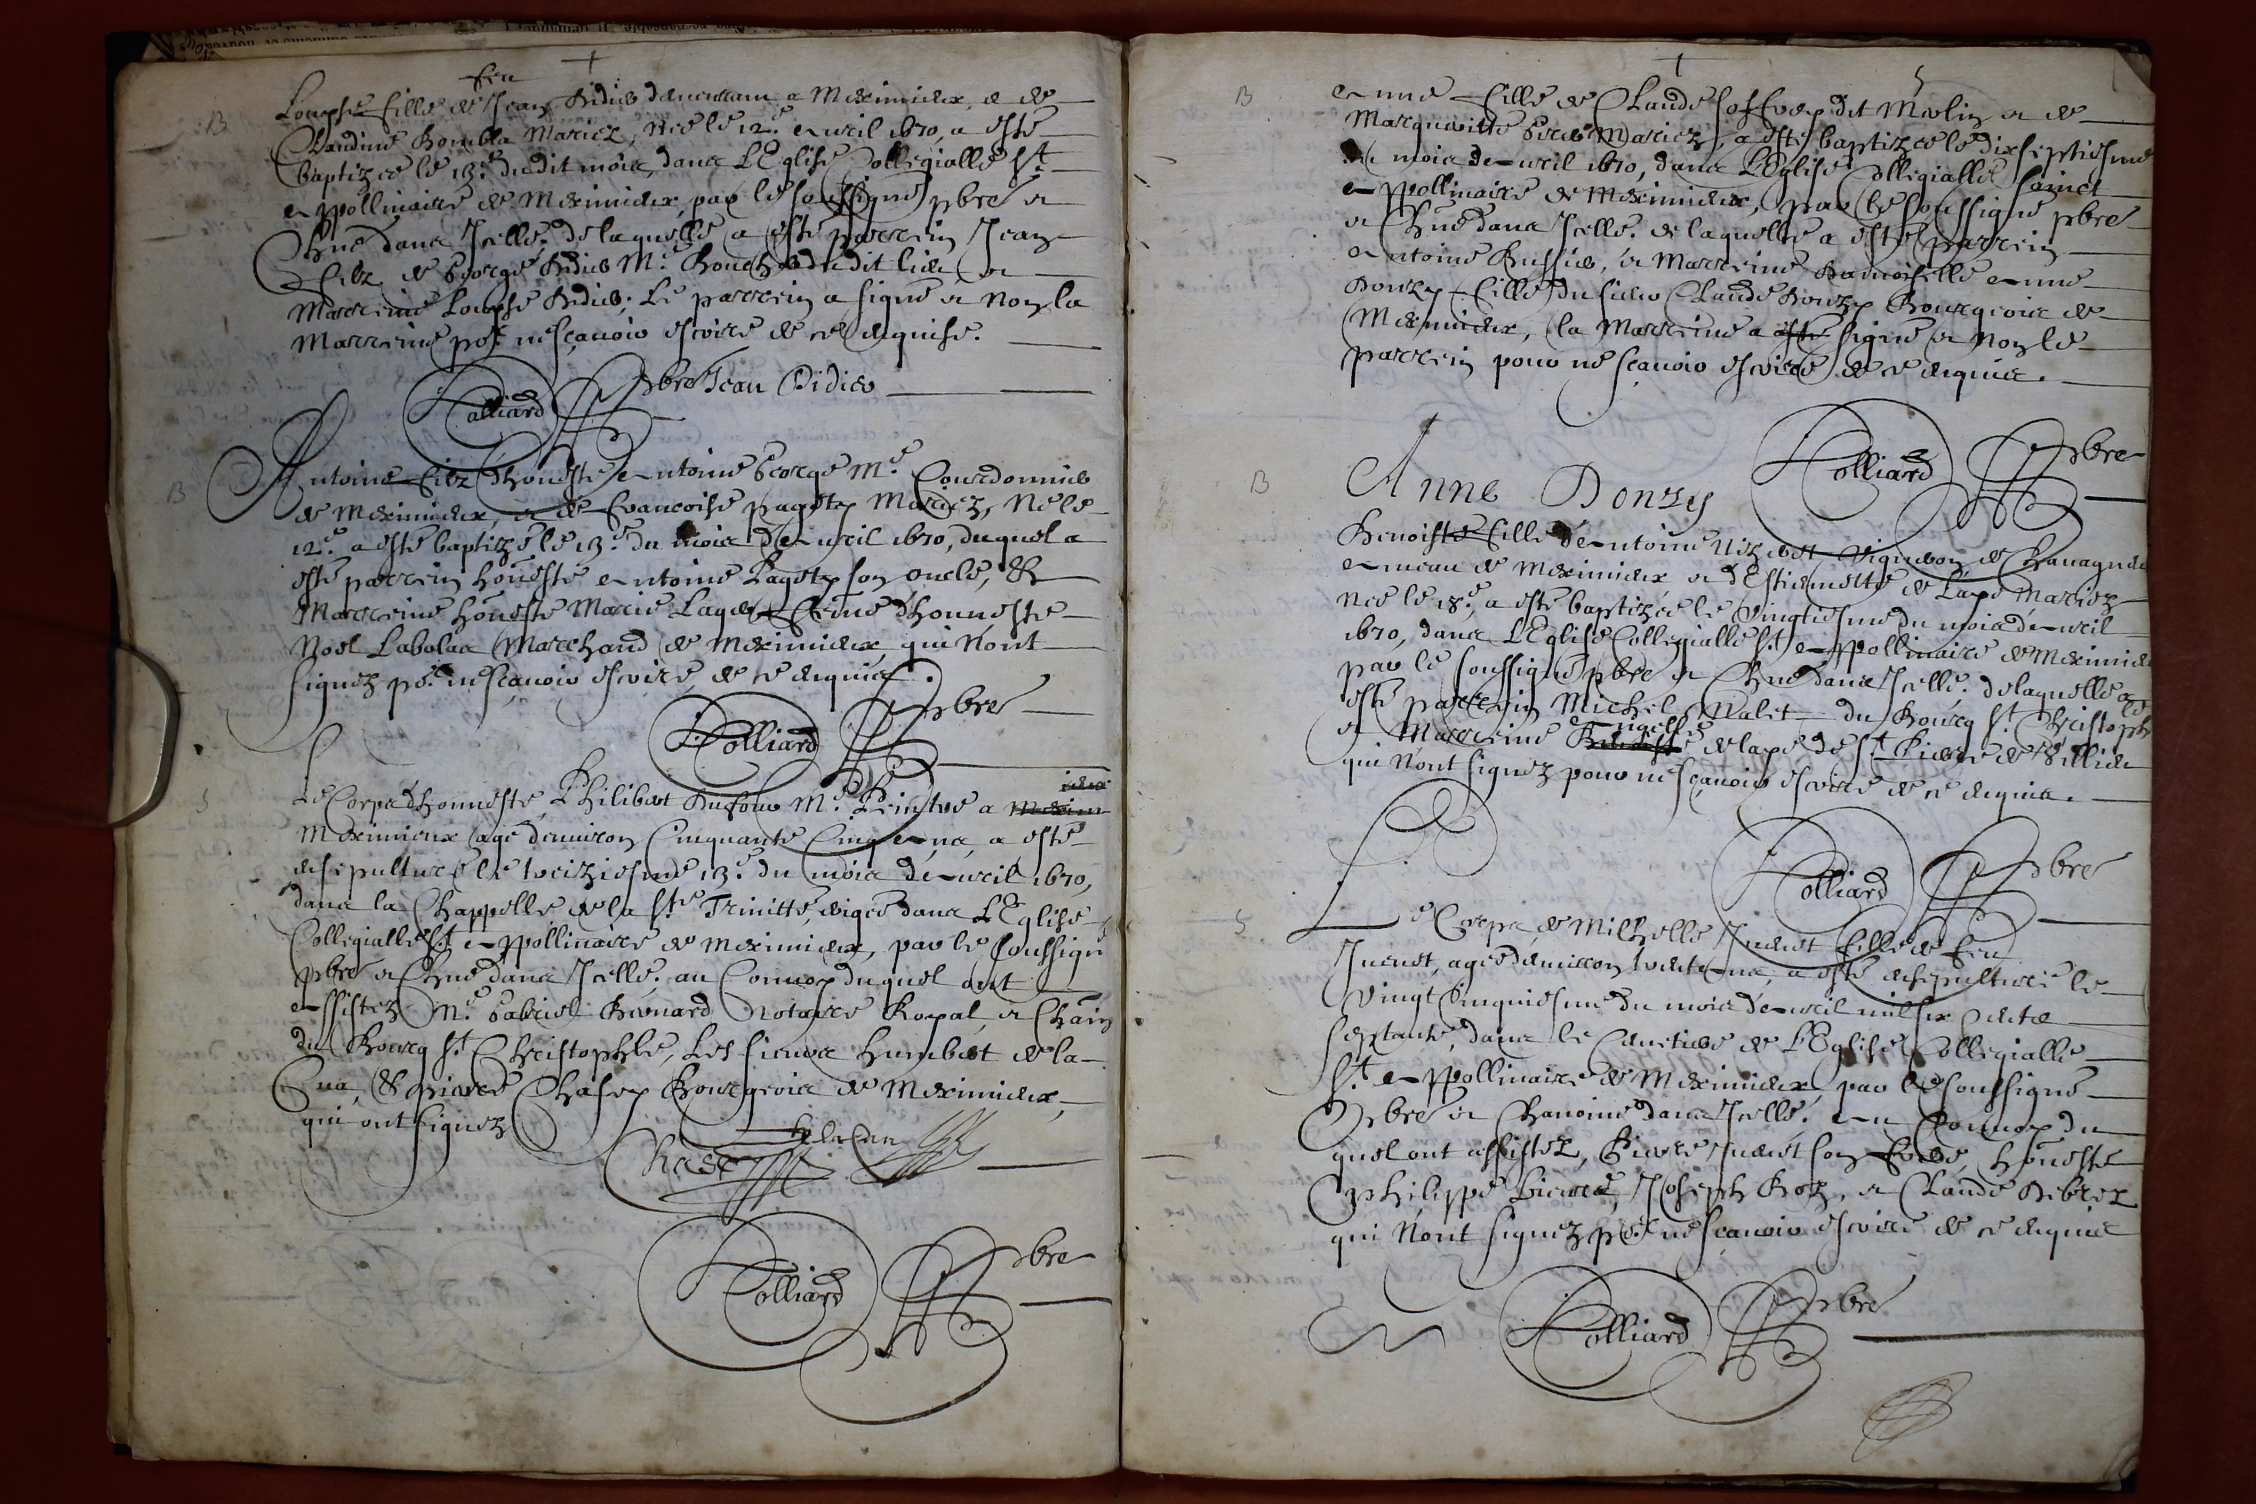 +
feu
B
Louyse fille de Jean Didier demeurant a Meximieux, et de
Claudine Bombla Mariez, née le 12.e Auril 1670, a esté
baptizée le 13.e dudit mois, dans L'Eglise Collegialle St
Appollinaire de Meximieux, par le soussigné pbre et
Chne dans Icelle. de laquelle a esté parrein Jean
filz de George Didier M.e Boucher dudit lieu et
Marreine Louyse Didier. Le parrein a signé et Non la
Marreine po.r ne sçauoir escrire de ce enquise.
Jean Didier
Rolliard pbre
B
Antoine filz d'honeste Antoine George M.e Courdonnier
de Meximieux, et de Francoise pagety Mariez, Né le
12.e a esté baptizé le 13.e du mois d'Auril 1670, duquel a
esté parrein honesté Antoine Pagety son oncle, &
Marreine honeste Marie femme d'honneste
Noel Labalas Marchand de Meximieux qui N'ont
signez po.r ne sçauoir escrire de ce enquis.
Rolliard pbre
S
Le Corps d'honneste Philibert Dufour M.e Peintre a
Meximieux agé d'enuiron Cinquante Cinq Ans, a esté
ensepulturé le treiziesme 13.e du mois d'Auril 1670,
dans la Chappelle de la Ste Trinitté, erigée dans L'Eglise
Collegialle St Appollinaire de Meximieux, par le soussigné
pbre et Chne dans Icelle. au Conuoy duquel ont
Assistez M.e Gabriel Bernard Notaire Royal et Chain
du Bourg St Christophle, Les sieurs humbert de la
Cua, & pierre Chasey Bourgeois de Meximieux,
qui ont signez
Chasey
Rolliard pbre
+
5
B
Anne fille de Claude dit Merlin et de
Margueritte Mariez, a esté baptizée le dixseptiesme
du mois d'Auril 1670, dans L'Eglise Collegialle sainct
Appollinaire de Meximieux, par le soussigné pbre
et Chne dans Icelle. de laquelle a esté parrein
Antoine Bussier, et Marreine Damoiselle Anne
Donzy fille du sieur Claude Donzy Bourgeois de
Meximieux, la Marreine a esté signé et Non le
parrein pour ne sçauoir escrire de ce enquis.
Rolliard pbre
Anne Donzy
B
Benoiste fille d'Antoine Vigneron de Chauagneu
Ameau de Meximieux et d'Estiennette de Lape Mariez
née le 18.e, a esté baptizée le Vingtiesme du mois d'Auril
1670, dans L'Eglise Collegialle St Appollinaire de Meximieux
par le soussigné pbre et Chne dans Icelle. de laquelle a
esté parrein Michel Valet du Bourg St Christophle
et Marreine de lape de St de
qui N'ont signez pour ne sçauoir escrire de ce enquis.
Rolliard pbre
S
Le Corps de Michelle Juenet fille de feu
Juenet, agée d'enuiron trente Ans, a esté ensepulturé le
Vingt Cinquiesme du mois d'Auril mil six Cents
septante, dans le Cimetiere de L'Eglise Collegialle
St Appollinaire de Meximieux, par le soussigné
Pbre et Chanoine dans Icelle. Au Conuoy du
quel ont assistez, Pierre Juenet son frere, honeste
philippe Joseph Roz, et Claude
qui N'ont signez po.r ne sçauoir escrire de ce enquis
Rolliard pbre